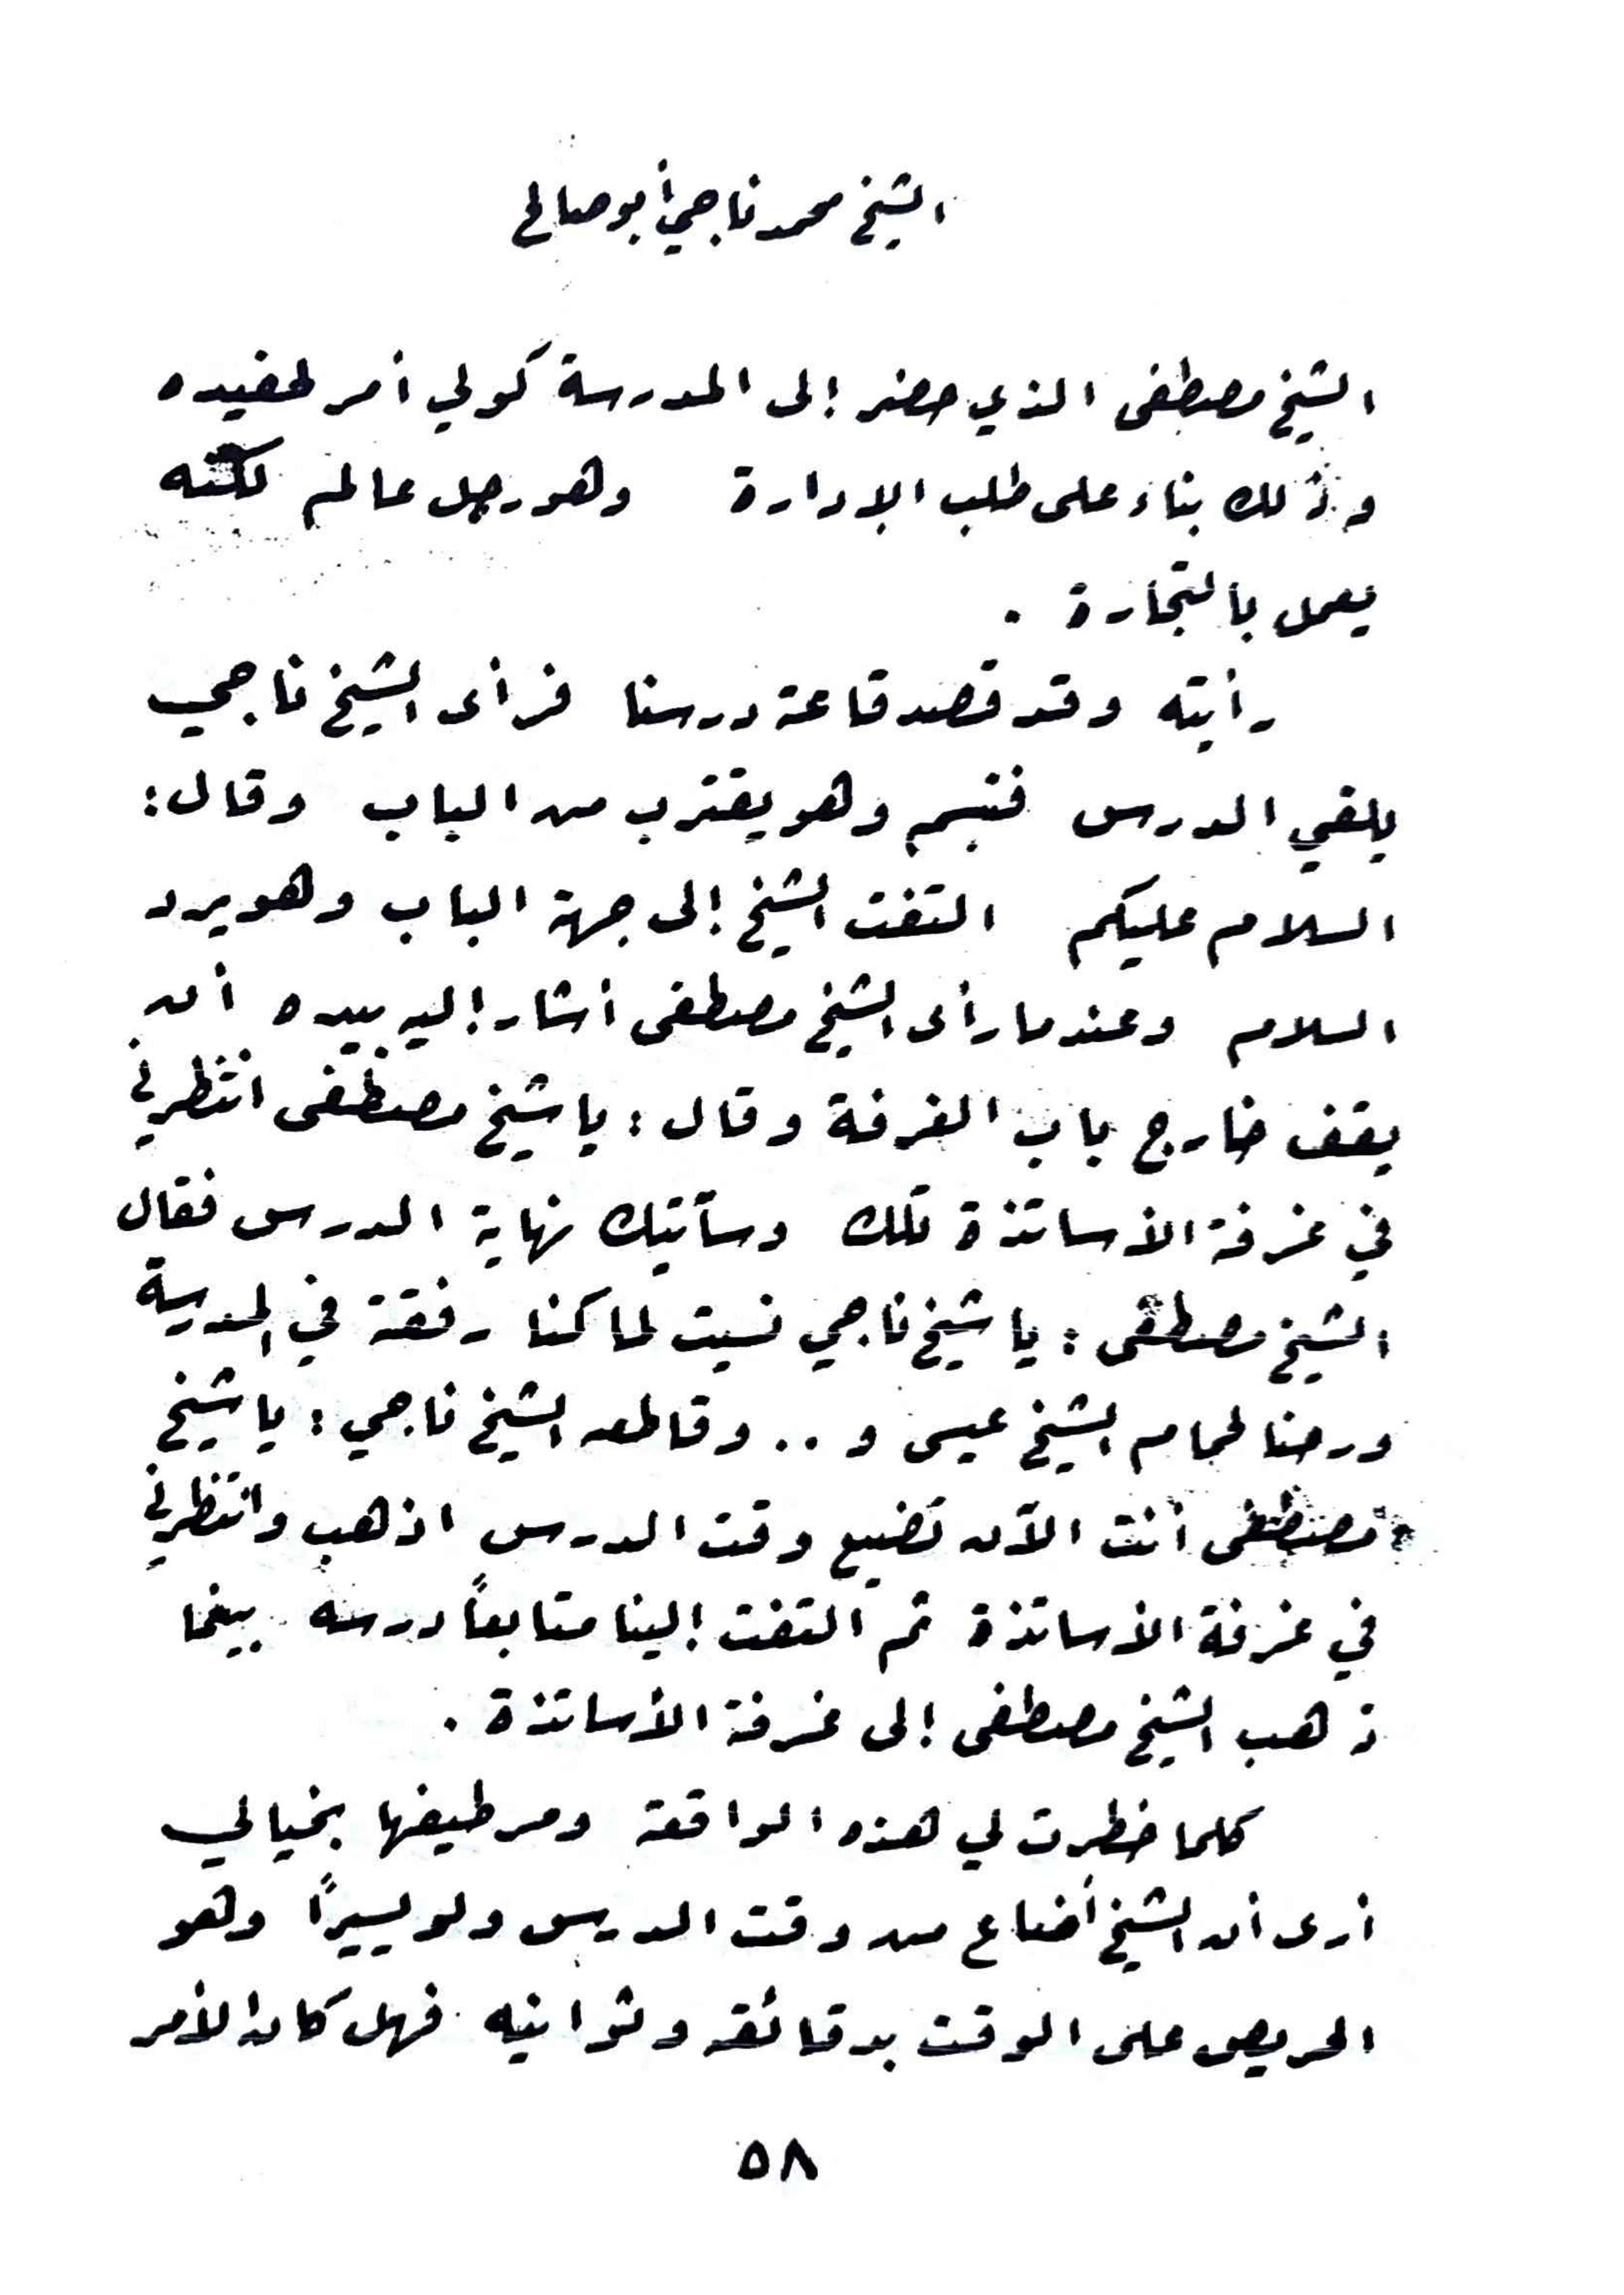 الشيخ محمد ناجي أبو صالح
الشيخ مصطفى الذي حضر إلى المدرسة كولي أمر لحفيده
وذلك بناء على طلب الإدارة وهو رجل عالم لكنه
يعمل بالتجارة .
رأيته وقد قصد قاعة درسنا فرأى الشيخ ناجي
يلقي الدرس فتبسم وهو يقترب من الباب وقال :
السلام عليكم التفت الشيخ إلى جهة الباب وهو يرد
السلام وعندما رأى الشيخ مصطفى أشار إليه بيده أن
يقف خارج باب الغرفة وقال : يا شيخ مصطفى انتظرني
في غرفة الأساتذة تلك وسآتيك نهاية الدرس فقال
الشيخ مصطفى : يا شيخ ناجي نسيت لما كنا رفقة في المدرسة
ورحنا لحمام الشيخ عيسى و .. وقاطعه الشيخ ناجي : يا شيخ
مصطفى أنت الآن تضيع وقت الدرس اذهب وانتظرني
في غرفة الأساتذة ثم التفت إلينا متابعاً درسه بينما
ذهب الشيخ مصطفى إلى غرفة الأساتذة .
كلما خطرت لي هذه الواقعة ومر طيفها بخيالي
أرى أن الشيخ أضاع من وقت الدرس ولو يسيراً وهو
الحريص على الوقت بدقائقه وثوانيه فهل كان الأمر
٥٨